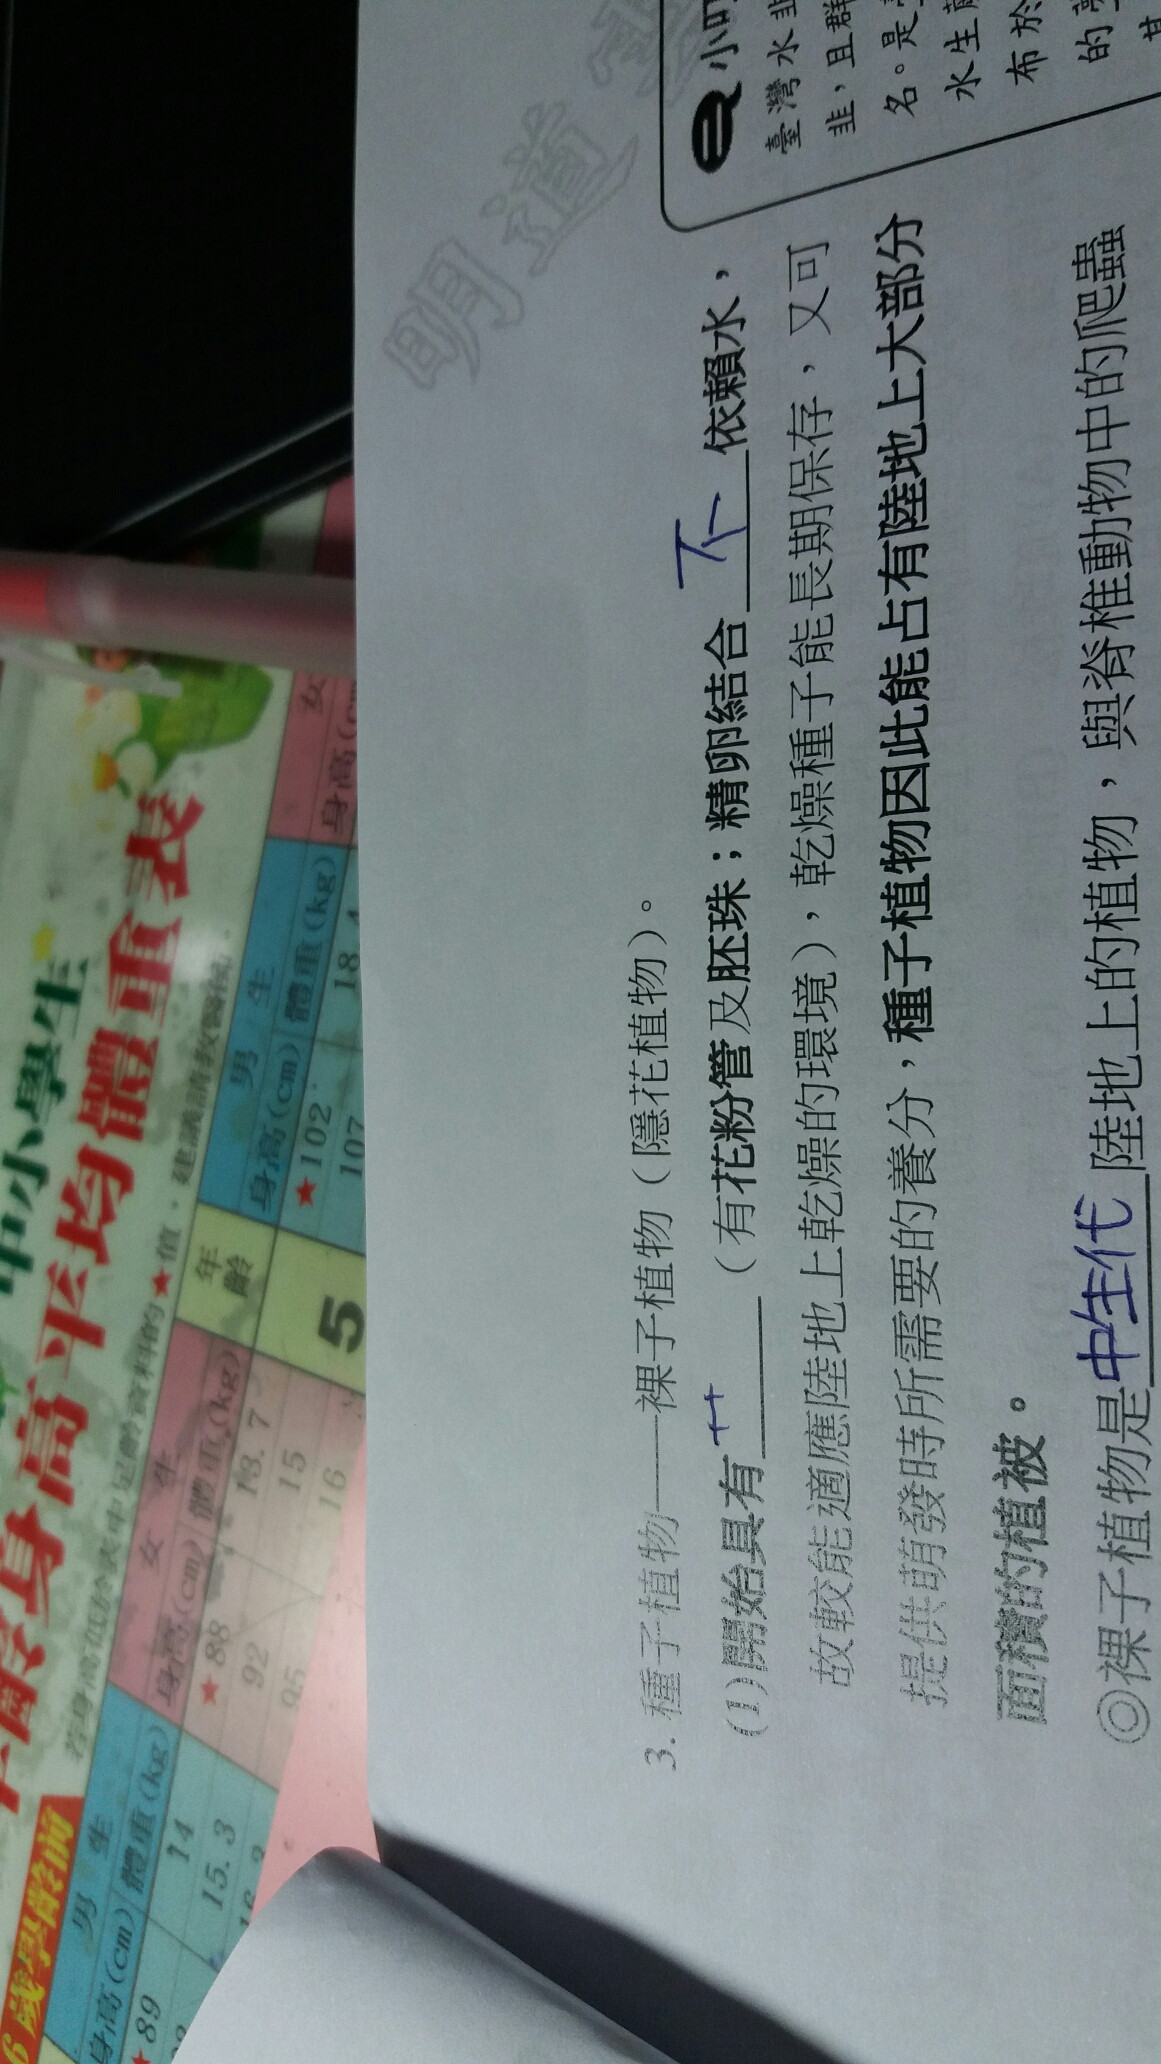 明道
3. 種子植物——裸子植物（隱花植物）。
(1)開始具有　　　（有花粉管及胚珠；精卵結合 不 依賴水，
故較能適應陸地上乾燥的環境），乾燥種子能長期保存，又可
提供萌發時所需要的養分，種子植物因此能占有陸地上大部分
面積的植被。
◎裸子植物是中生代陸地上的植物，與脊椎動物中的爬蟲
小叮
臺灣水韭
韭，且群
名。是
水生蕨
布於
的
其
中小學生
身高平均體重表
值，建議請教醫師.
6歲學齡前
男 生
身高(cm) 體重(kg)
★89
14
15.3
女 生
身高(cm) 體重(kg)
★88 13.7
92 15
95 16
年齡
5
男 生
身高(cm) 體重(kg)
★102 18.4
107
女
身高(c